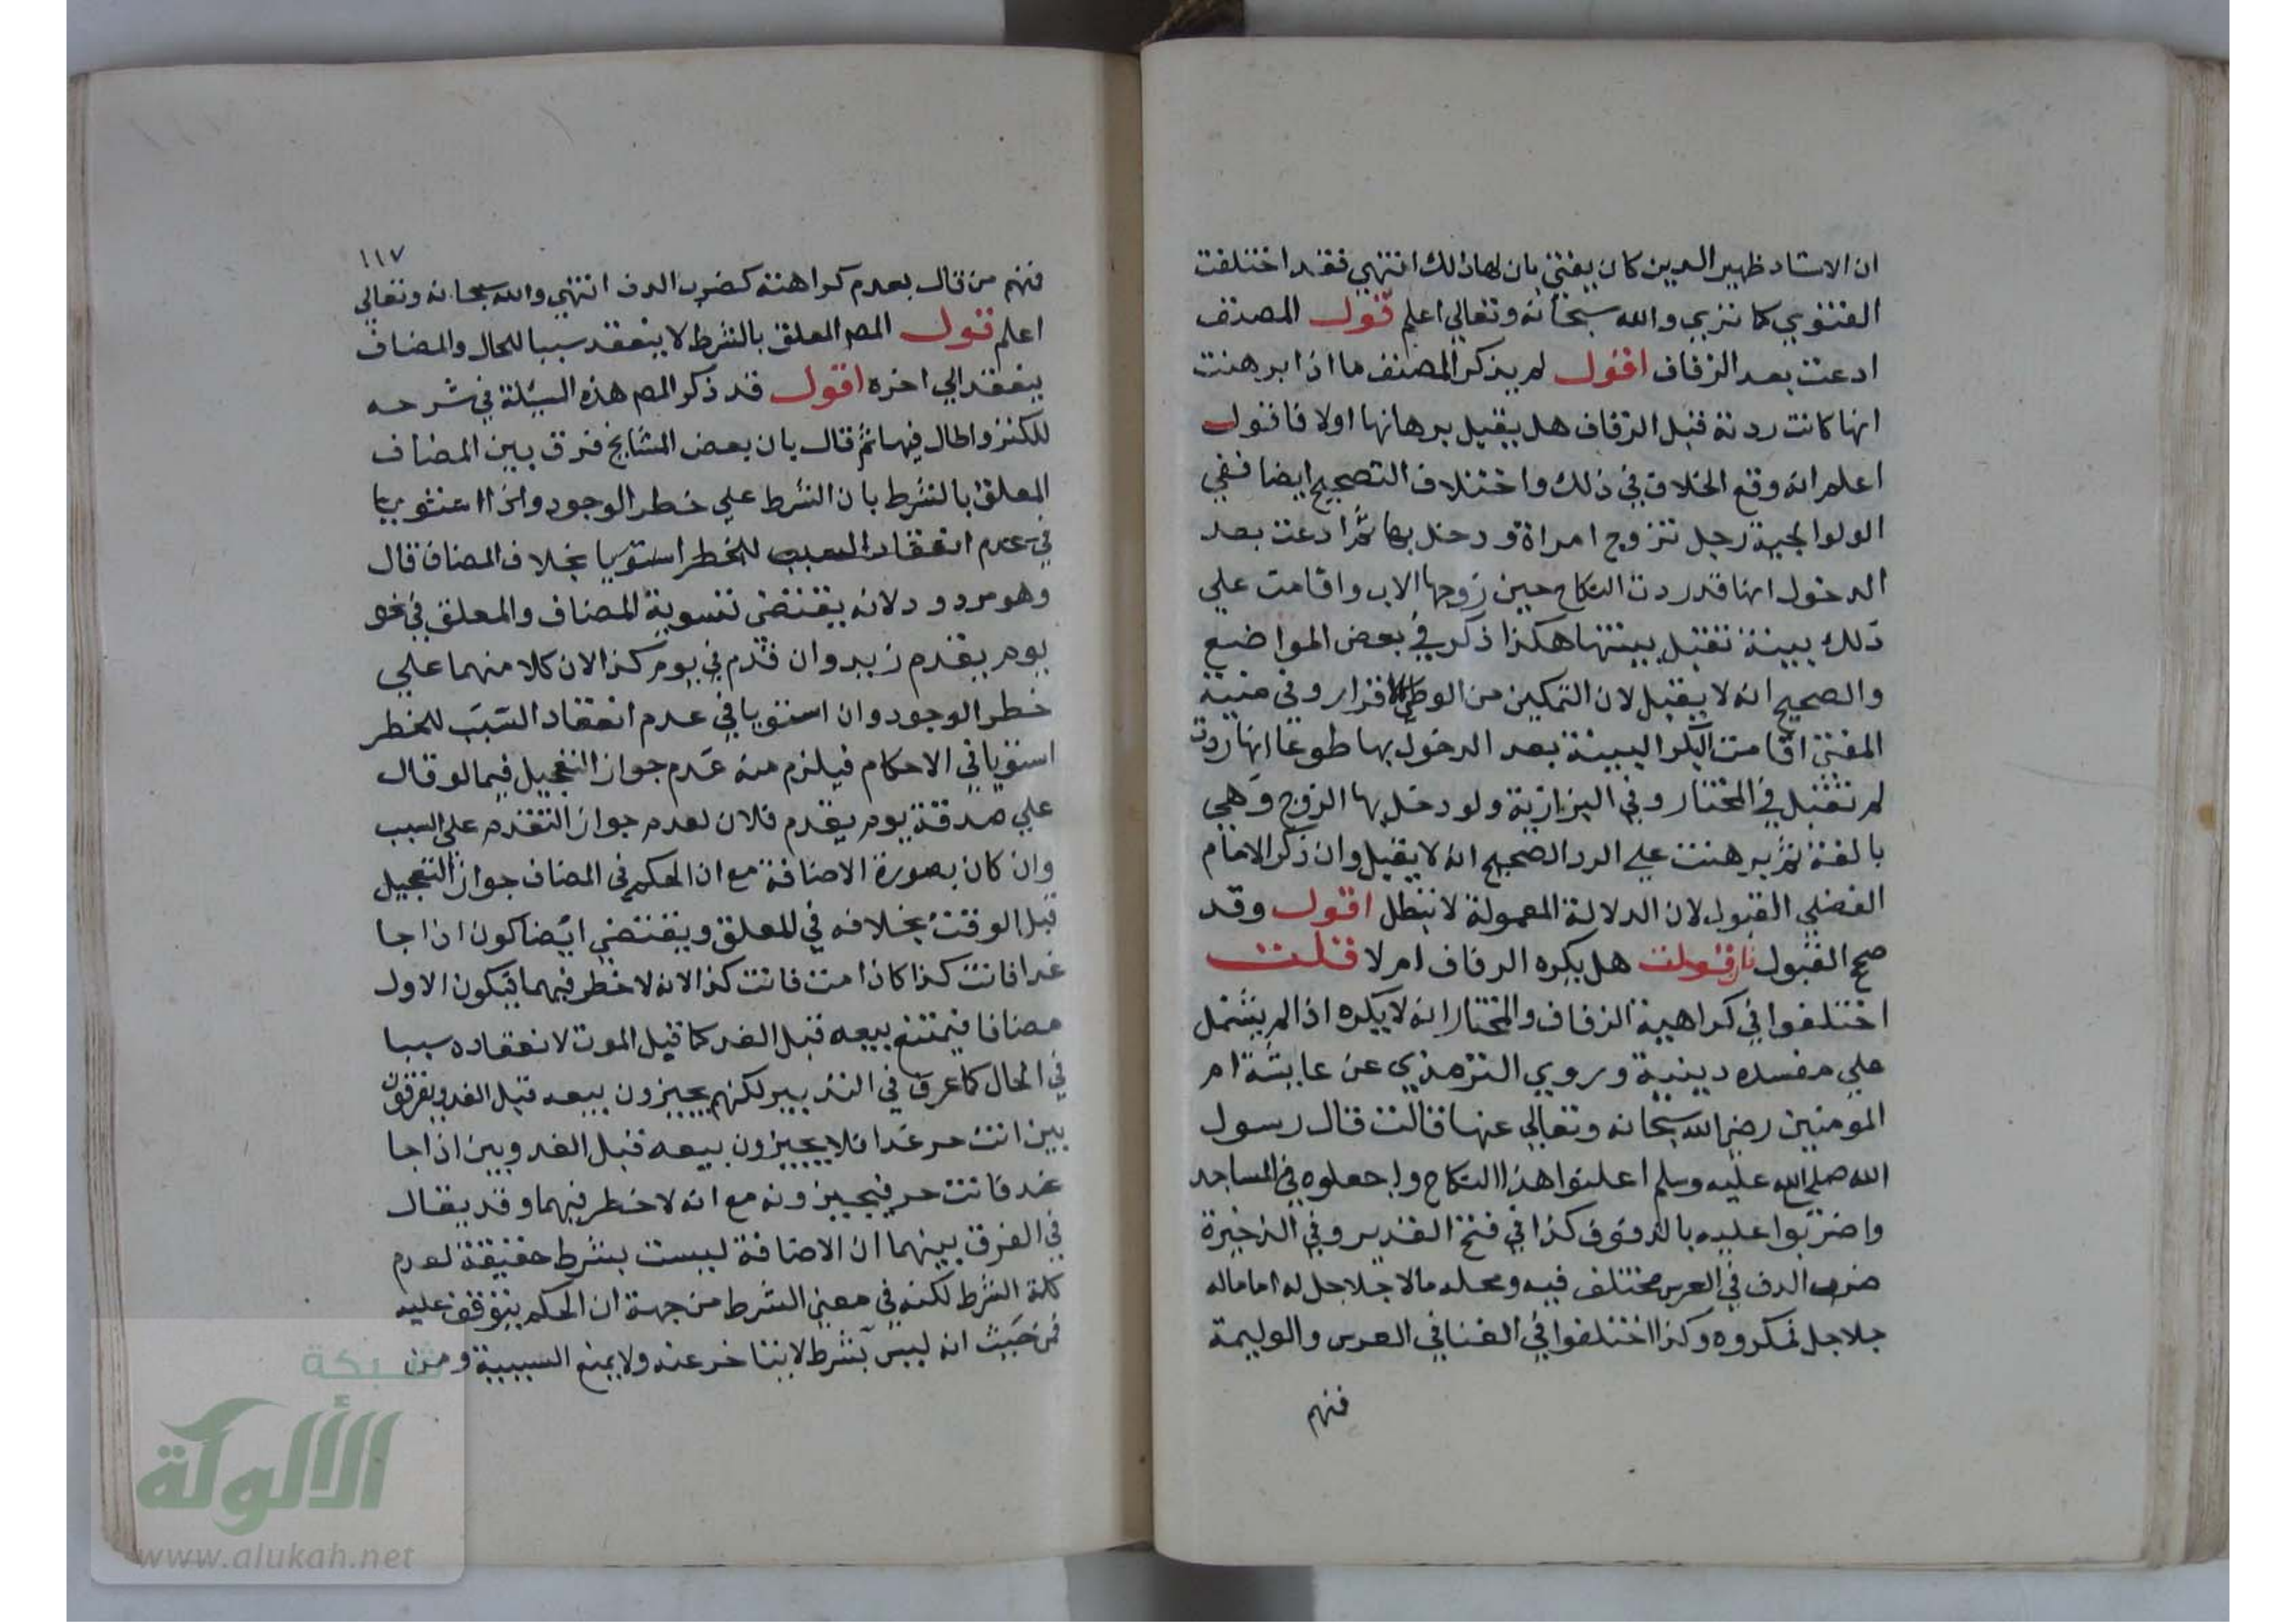 ان الاستاد ظهير الدين كان يفتي بان لها ذلك انتهي فقد اختلفت
الفتوي كما تري والله سبحانه وتعالي اعلم قول المصنف
ادعت بعد الزفاف اقول لم يذكر المصنف ما اذا برهنت
انها كانت ردته قبل الزفاف هل يقبل برهانها اولا فاقول
اعلم انه وقع الخلاف في ذلك واختلاف التصحيح ايضا ففي
الولوالجية رجل تزوج امراة ودخل بها ثم ادعت بعد
الدخول انها قد ردت النكاح حين زوجها الاب واقامت علي
ذلك بينة تقبل بينتها هكذا ذكر في بعض المواضع
والصحيح انه لا يقبل لان التمكين من الوطي كالاقرار وفي منية
المفتي اقامت البكر البينة بعد الدخول بها طوعا انها ردت
لم تقبل في المختار وفي البزازية ولو دخل بها الزوج وهي
بالغة ثم برهنت علي الرد الصحيح انه لا يقبل وان ذكر الامام
الفضلي القبول لان الدلالة المعمولة لا تبطل اقول وقد
صح القبول فان قلت هل يكره الزفاف ام لا قلت
اختلفوا في كراهية الزفاف والمختار انه لا يكره اذا لم يشتمل
علي مفسده دينية وروي الترمذي عن عايشة ام
المومنين رضي الله سبحانه وتعالي عنها قالت قال رسول
الله صلي الله عليه وسلم اعلنوا هذا النكاح واجعلوه في المساجد
واضربوا عليه بالدفوف كذا في فتح القدير وفي الذخيرة
ضرب الدف في العرس مختلف فيه ومحله مالا جلاجل له اما ماله
جلاجل فمكروه وكذا اختلفوا في الغنا في العرس والوليمة
فمنهم
١١٧
فمنهم من قال بعدم كراهته كضرب الدف انتهي والله سبحانه وتعالي
اعلم قول المص المعلق بالشرط لا ينعقد سببا للحال والمضاف
ينعقد الي اخره اقول قد ذكر المص هذه المسئلة في شرحه
للكنز واطال فيها ثم قال بان بعض المشايخ فرق بين المضاف
المعلق بالشرط بان الشرط علي خطر الوجود
في عدم انعقاد السبب للخطر استويا بخلاف المضاف قال
وهو مردود لانه يقتضي تسوية المضاف والمعلق في نحو
يوم يقدم زيد وان قدم في يوم كذا لان كلا منهما علي
خطر الوجود وان استويا في عدم انعقاد السبب للخطر
استويا في الاحكام فيلزم منه عدم جواز التعجيل فيما لو قال
علي صدقة يوم يقدم فلان لعدم جواز التقدم علي السبب
وان كان بصورة الاضافة مع ان الحكم في المضاف جواز التعجيل
قبل الوقت بخلافه في المعلق ويقتضي ايضا كون اذا جا
غدا فانت كذا كاذا مت فانت كذا لانه لا خطر فيهما فيكون الاول
مضافا فيمتنع بيعه قبل الغد كما قبل الموت لانعقاده سببا
في الحال كما عرف في التدبير لكنهم يجيزون بيعه قبل الغد ويفرقون
بين انت حر غدا فلا يجيزون بيعه قبل الغد وبين اذا جا
غد فانت حر فيجيزونه مع انه لا خطر فيهما وقد يقال
في الفرق بينهما ان الاضافة ليست بشرط حقيقة لعدم
كلمة الشرط لكنه في معني الشرط من جهة ان الحكم يتوقف عليه
فمن حيث انه ليس بشرط لا يتاخر عنه ولا يمنع السببية ومن
شبكة
الألوكة
www.alukah.net